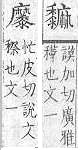 謨加切廣雅
也文一
𪎭
忙皮切說文
穄也文一